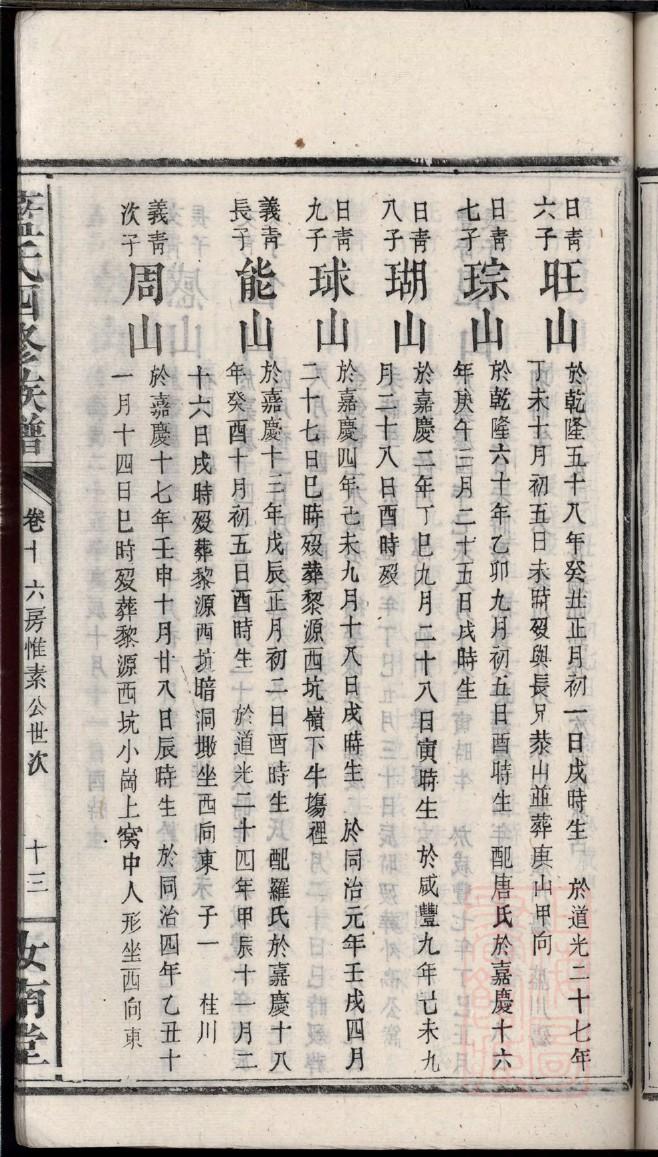 日青
六子
旺山
於乾隆五十八年癸丑正月初一日戌時生　於道光二十七年
丁未十月初五日未時歿與長兄㳟山並葬庚山甲向
日青
七子
琮山
於乾隆六十年乙卯九月初五日酉時生　配唐氏於嘉慶十六
年庚午三月二十五日戌時生
日青
八子
瑚山
於嘉慶二年丁巳九月二十八日寅時生　於咸豐九年己未九
月二十八日酉時歿
日青
九子
球山
於嘉慶四年己未九月十八日戌時生　於同治元年壬戌四月
二十七日巳時歿葬黎源西坑嶺下牛塲裡
義青
長子
能山
於嘉慶十三年戊辰正月初二日酉時生　配羅氏於嘉慶十八
年癸酉十月初五日酉時生　於道光二十四年甲辰十一月二
十六日戌時歿葬黎源西坑暗洞墩坐西向東　子一　桂川
義青
次子
周山
於嘉慶十七年壬申十月廿八日辰時生　於同治四年乙丑十
一月十四日巳時歿葬黎源西坑小崗上窩中人形坐西向東
氏四修族譜
卷十　六房惟素公世次　十三
汝南堂